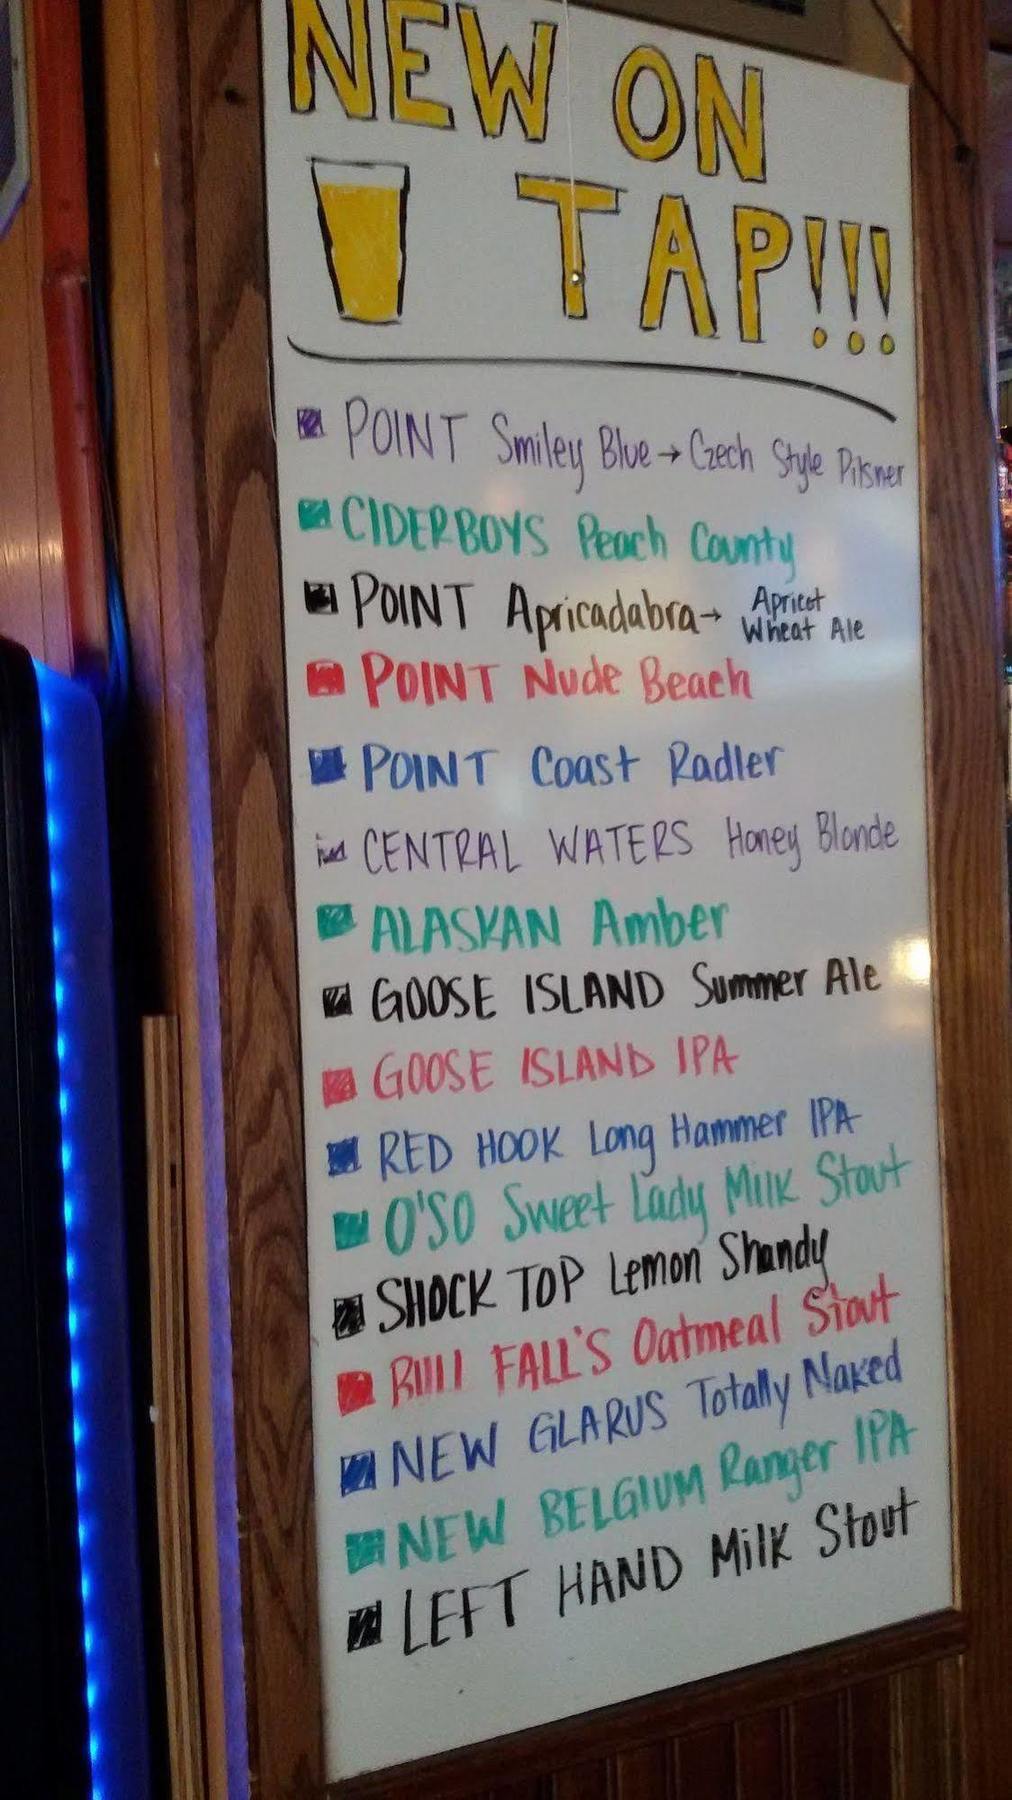 NEW ON
TAP!!!
POINT Smiley Blue → Czech Style Pilsner
CIDERBOYS Peach County
POINT Apricadabra → Apricot
Wheat Ale
POINT Nude Beach
POINT Coast Radler
CENTRAL WATERS Honey Blonde
ALASKAN Amber
GOOSE ISLAND Summer Ale
GOOSE ISLAND IPA
RED HOOK Long Hammer IPA
O'SO Sweet Lady Milk Stout
SHOCK TOP Lemon Shandy
BULL FALL'S Oatmeal Stout
NEW GLARUS Totally Naked
NEW BELGIUM Ranger IPA
LEFT HAND Milk Stout